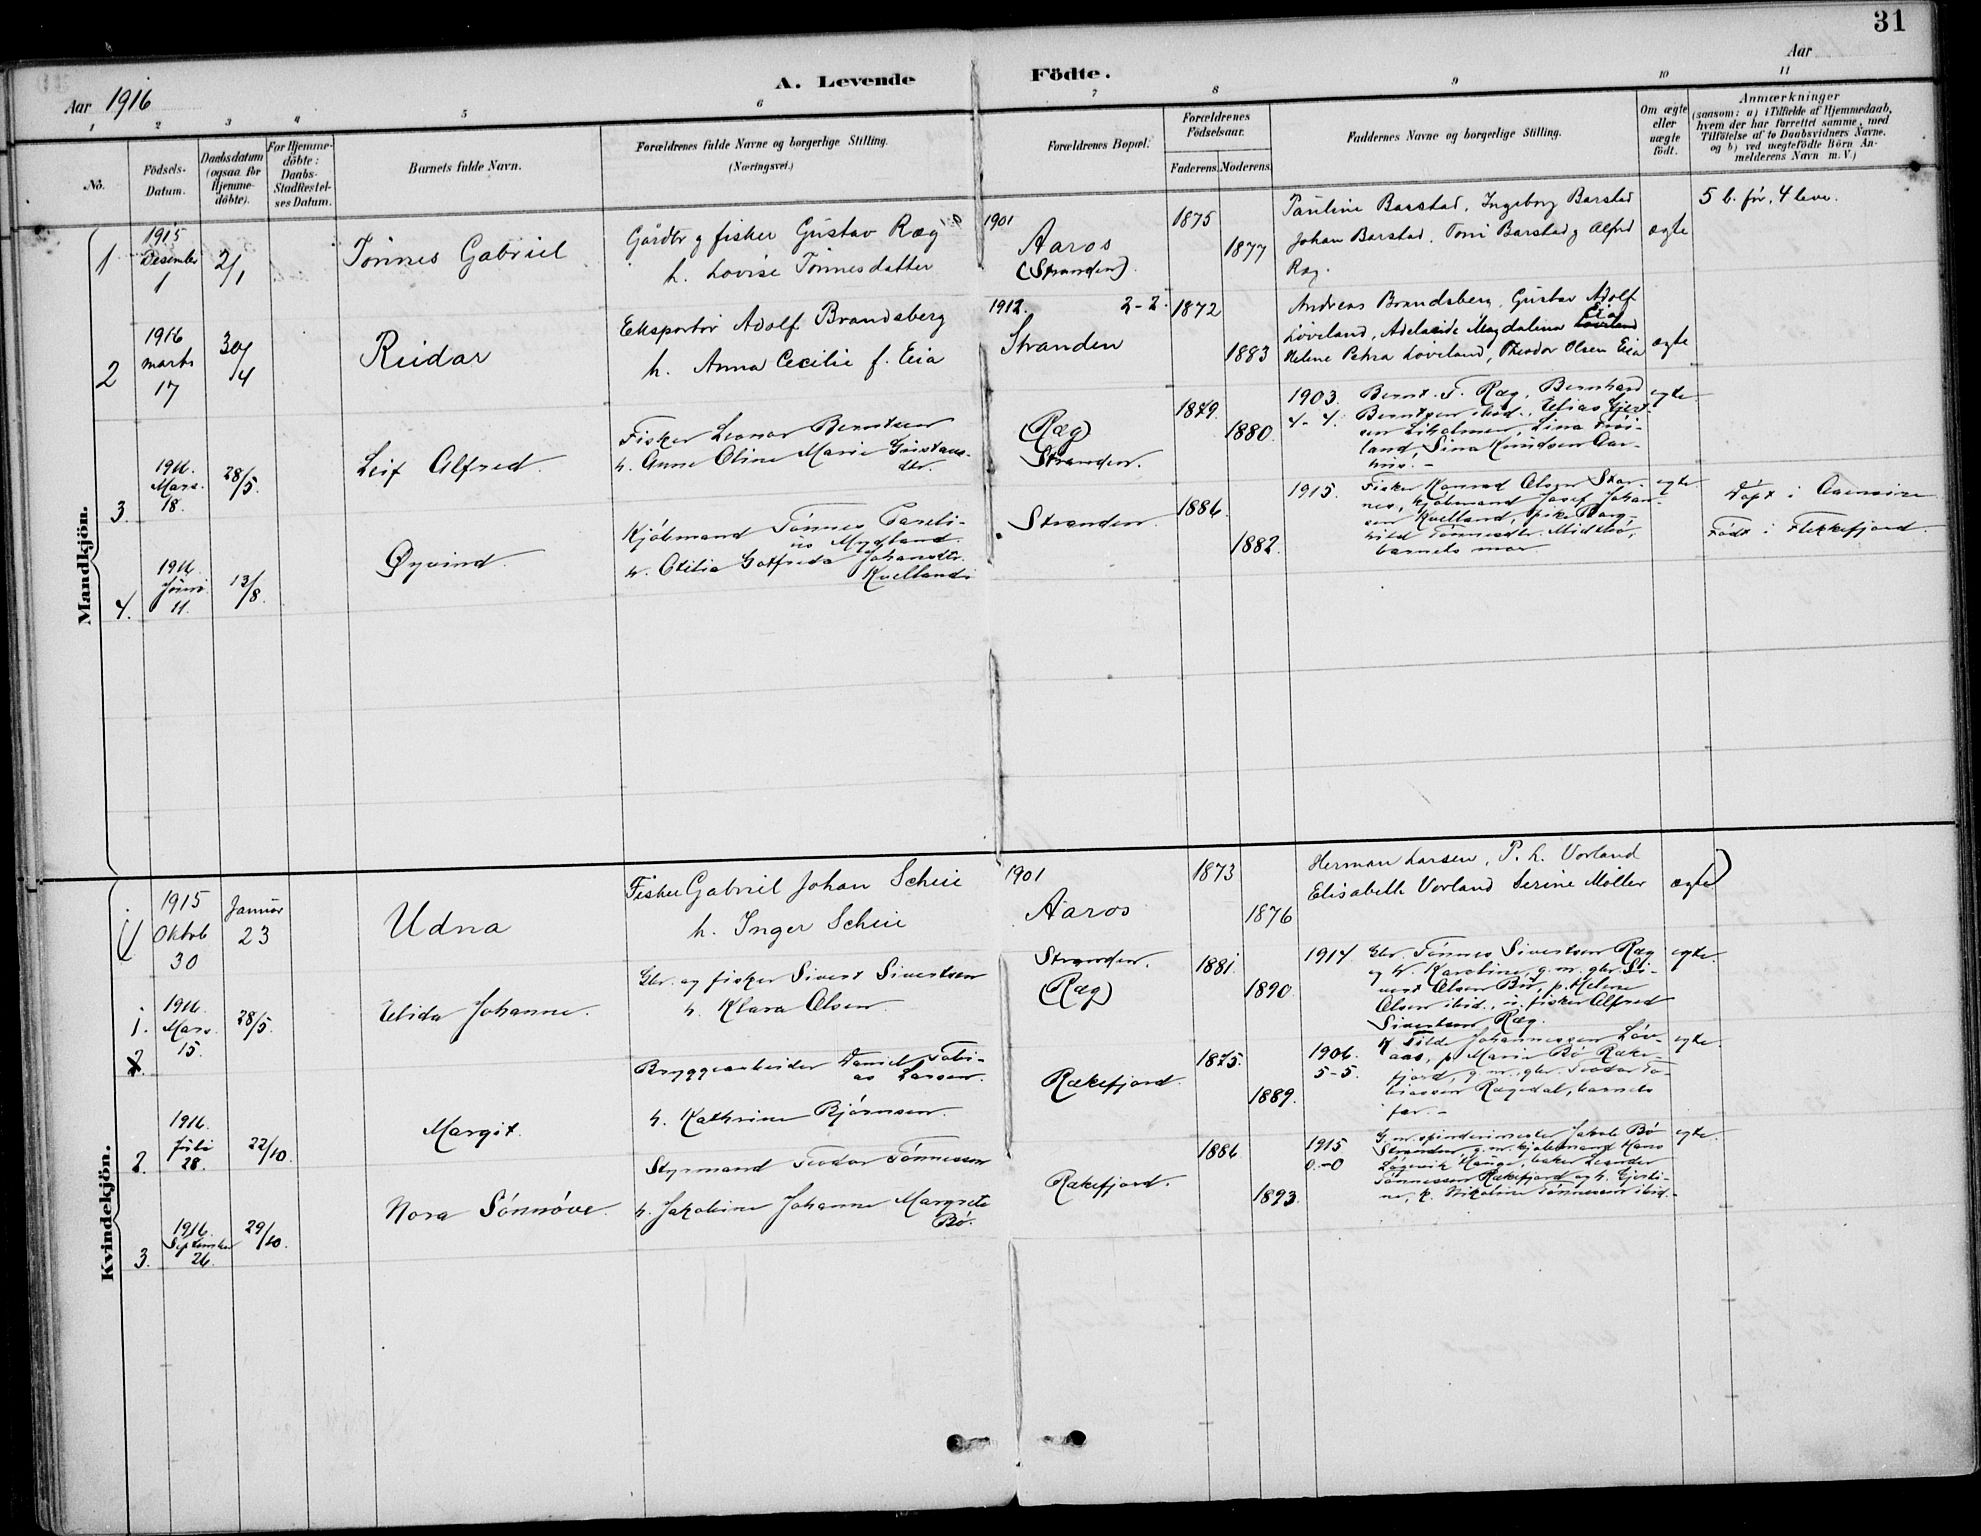 31
Aar 1916
A. Levende Födte.
Aar
1 2 3 4 5 6 7 8 9 10 11
No.
Födsels-Datum.
Daabsdatum (ogsaa for Hjemme-döbte).
For Hjemme-döbte: Daabs-Stadfestel-ses Datum.
Barnets fulde Navn.
Forældrenes fulde Navne og borgerlige Stilling.
(Næringsvei.)
Forældrenes Bopæl.
Forældrenes Födselsaar.
Faderens. Moderens.
Faddernes Navne og borgerlige Stilling.
Om ægte eller uægte födt.
Anmærkninger
(saasom: a) i Tilfælde af Hjemmedaab,
hvem der har forrettet samme, med
Tilföielse af to Daabsvidners Navne.
og b) ved uægtefödte Börn An-
melderens Navn m. V.)
Mandkjön.
1
1915
Desember
1
2/1
Tönnes Gabriel
Gårdbr g fisker Gustav Ræg
h. Lovise Tönnesdatter
1901
Aaros
(Stranden).
1875
1877
Pauline Barstad, Ingeborg Barstad
Johan Barstad, Toni Barstad g Alfred
Ræg.
ægte
5 b. før, 4 leve.
2
1916
marts
17
30/4
Reidar
Eksportör Adolf Brandsberg
h. Anna Cecilie f. Eia
1912. 2-2.
Stranden
1872
1883
Andreas Brandsberg, Gustav Adolf
Löveland, Adelaide Magdalena Eia
Helene Petra Löveland, Theodor Olsen Eia
ægte
3.
1916.
Mars.
18.
28/5.
Leif Alfred.
Fisker Leonar Berntsen
h. Anne Oline Marie Gustavs-
dtr.
(Ræg)
Stranden.
1879.
1880.
1903.
4-4.
Bernt. T. Ræg, Bernhard
Berntsen ibid., Elias Gjert-
sen Liholmen, Lina Fröi-
land, Sina Knudsen Aar-
hus.
egte
4.
1916.
Juni
11.
13/8.
Øyvind.
Kjöbmand Tönnes Paseli-
us Mydland.
h. Otilia Gotfreda Johansdtr.
Kvelland.
Stranden.
1886.
1882.
1915.
Fisker Konrad Olsen Star-
nes, kjöbmand Josef Johan-
sen Kvelland, pike Borg-
hild Tönnesdtr. Midtbö,
barnets mor
egte
Döpt i Aaensire
Födt i Flekkefjord.
Kvindekjön.
1
1915
Oktob
30
Januar
23
Udna
Fisker Gabriel Johan Scheie
h. Inger Scheie
1901
Aaros
1873
1876
Herman Larsen, P. L. Vorland
Elisabeth Vorland Serine Möller
ægte
1.
1916.
Mars.
15.
28/5.
Elida Johanne.
Gbr. og fisker Sivert Sivertsen
h. Klara Olsen.
Stranden.
(Ræg)
1881.
1890.
1914
Gbr. Tönnes Sivertsen Ræg
og h. Karoline, g.m. gbr. Si-
vert Olsen Bö, p. Helene
Olsen ibid., u. fisker Alfred
Sivertsen Ræg.
egte.
2.
1916.
Juli
28.
22/10.
Margit.
Bryggearbeider Daniel Tobi-
as Larsen.
h. Kathrine Bjørnsen.
Rækefjord.
1875.
1889.
1906.
5-5.
K Tilde Johannessen Löv-
aas, p Marie Bö Ræke-
fjord, g.m. gbr. Teodor To-
biassen Rægedal, barnets
far.-
egte.
3.
1916.
September
26.
29/10.
Nora Sönnöve.
Styrmand Teodor Tönnessen
h. Jakobine Johanne Margrete
Bö.
Rækefjord.
1886
1893.
1915
0.-0
G.m. spinderimester Jakob Bö
Stranden, g.m. kjöbmand Hans
Lögevik Hauge, baker Leander
Tönnessen Rækefjord og h. Gjerti-
ne, p. Nikoline Tönnessen ibid.
egte.